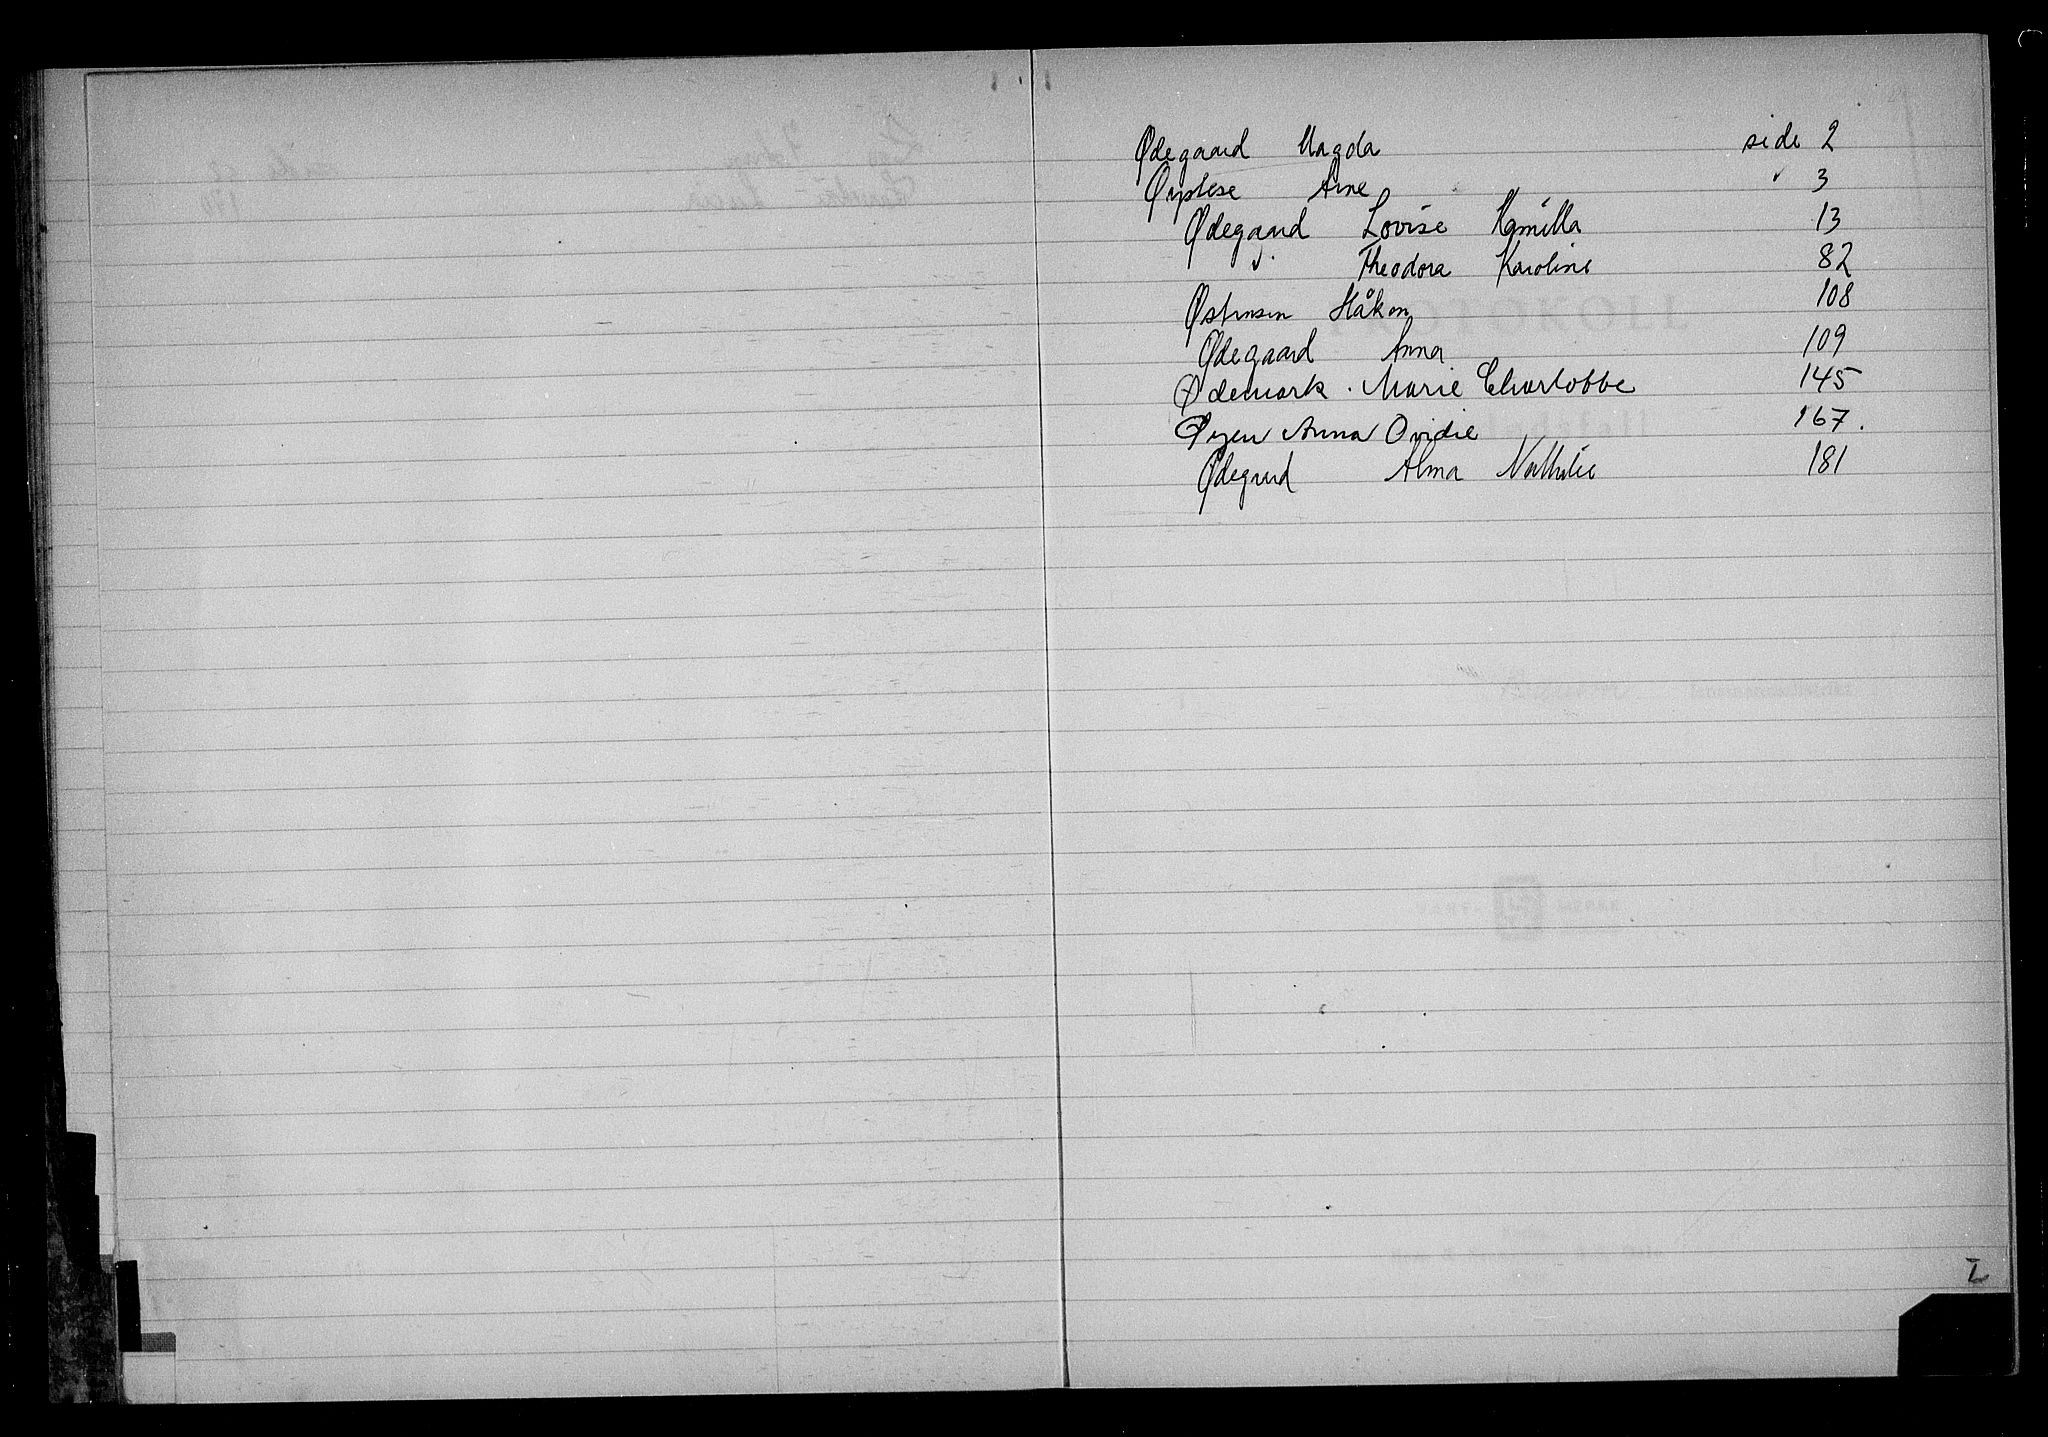 Ødegaard Magda side 2
Arne 3
Ødegaard Lovise Kamilla 13
Theodora Karoline 82
Østensen Håkon 108
Ødegaard Anna 109
Ødemark. Marie Charlotte 145
Øyen Anna Ovidie 167.
Ødegaard Alma Nathalie 181